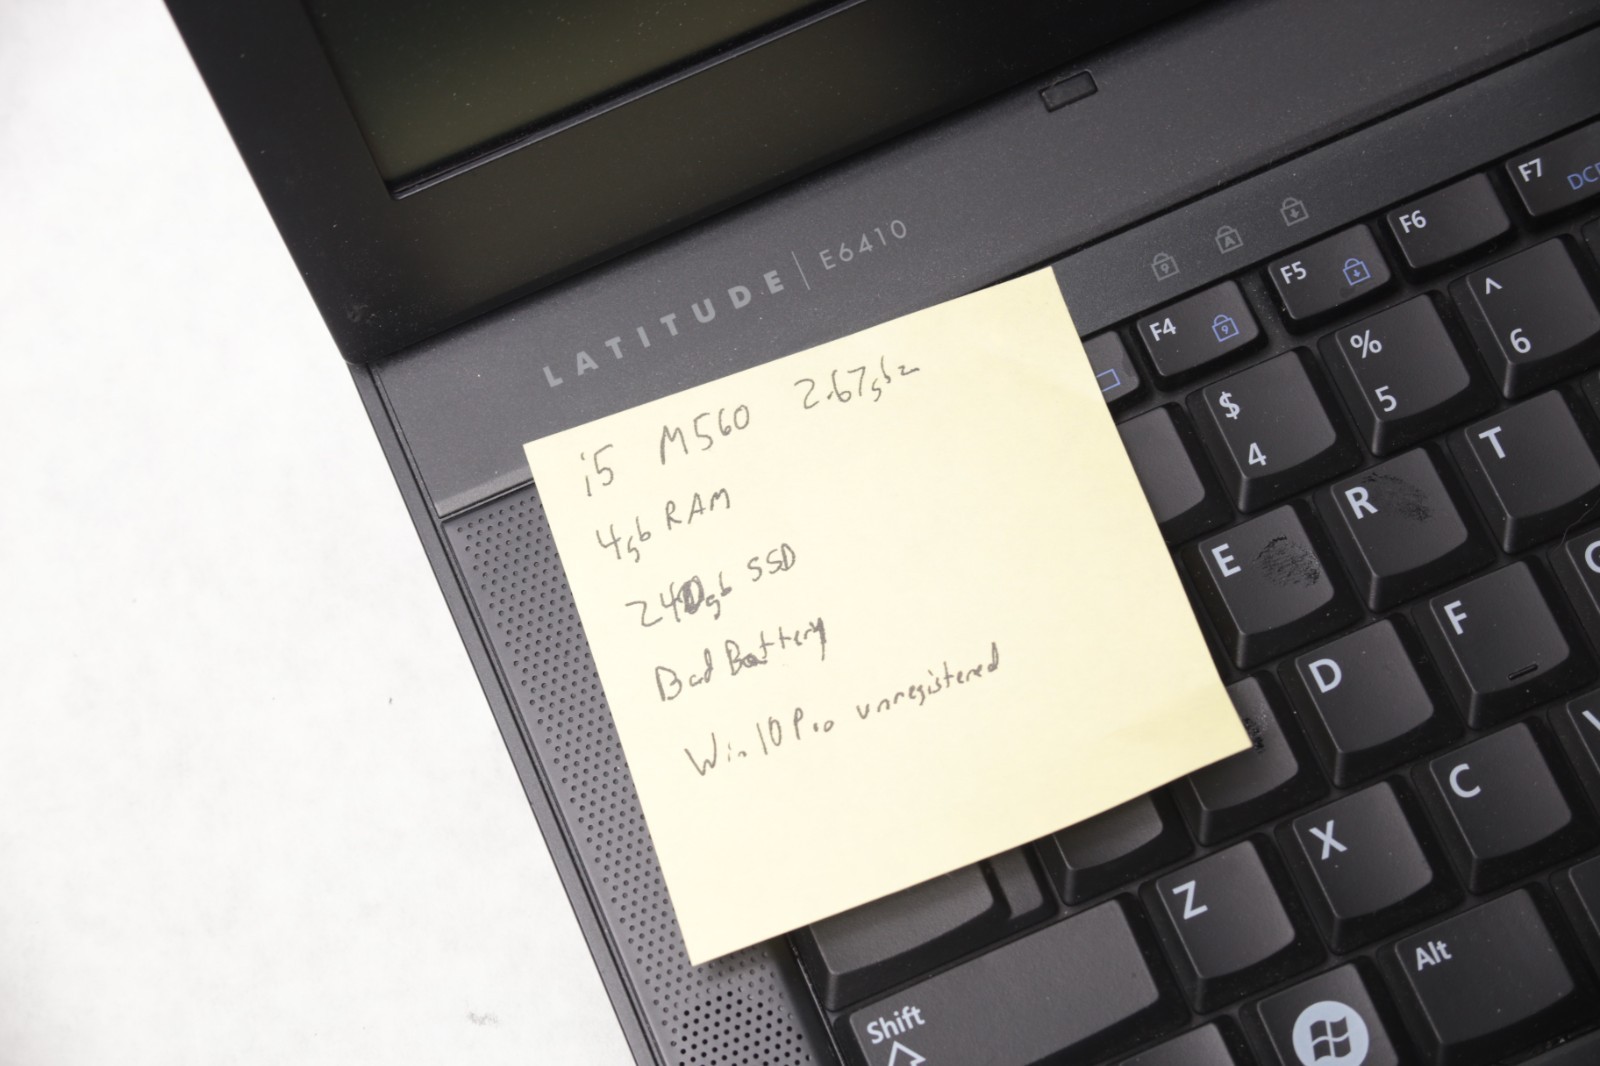 LATITUDE | E6410
i5 M560 2.67ghz
4gb RAM
240gb SSD
Bad Battery
Win 10 Pro unregistered
F4 F5 F6 F7
$ 4 % 5 ^ 6
E R T
D F
Z X C
Shift Alt